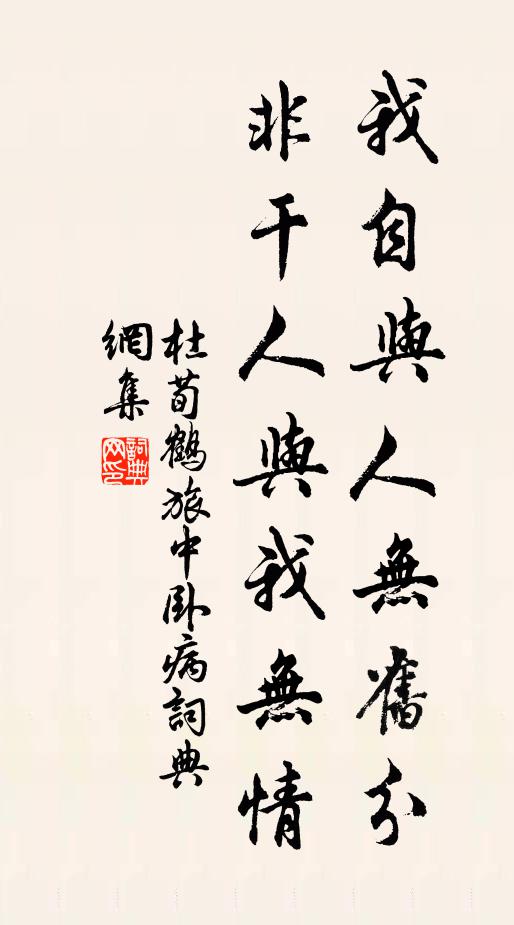 我自與人無舊分
非干人與我無情
杜荀鶴旅中臥病詞典
網集
詞典
网印